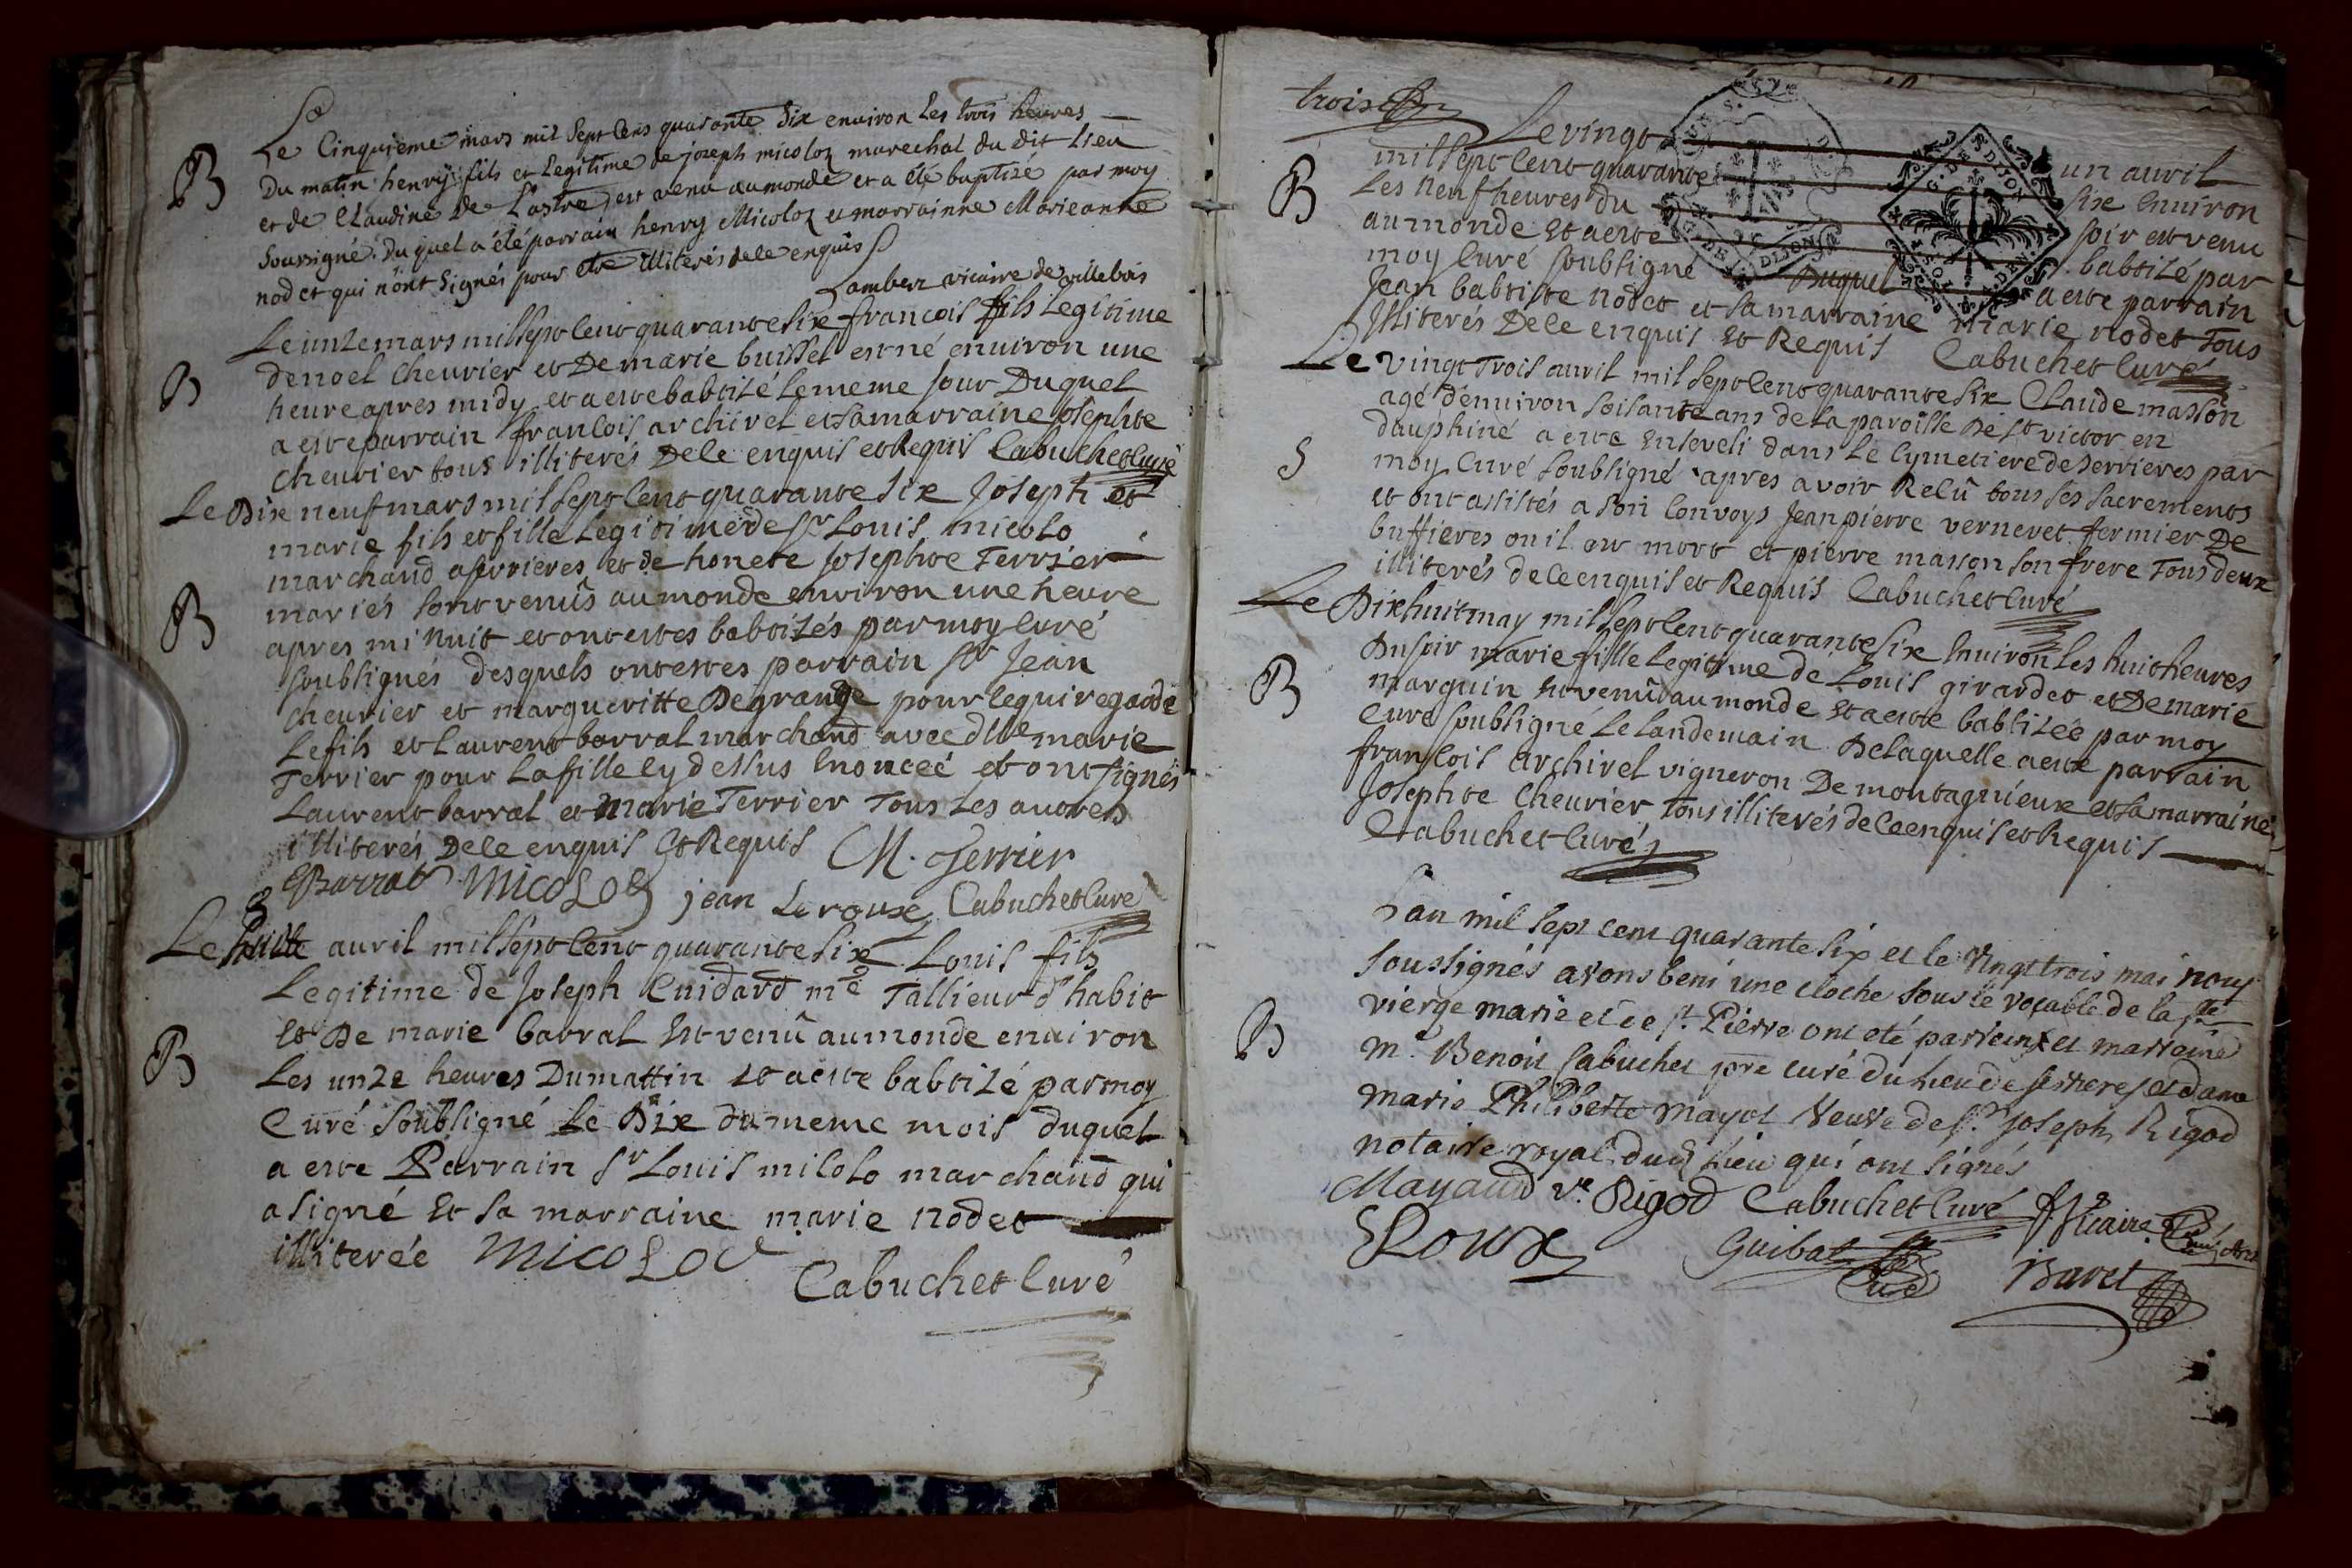 Le Cinquieme mars mil Sept Cens quarante Six environ Les trois heures
Du matin henrÿ fils et Legitime de joseph micoloz marechal du dit Lieu
et de Claudine De Lastre est venu au monde et a été baptisé par moy
Soussigné. Du quel a été parrain henry Micoloz et marrainne Marieanne
nodet qui n'ont Signés pour etre illiterés de ce enquis
Lambert vicaire de villebois
B
Le unze mars mil sept cent quarante six francois fils Legitime
de noel Chevrier et De marie buissel est né environ une
heure apres midy et a este babtizé le meme jour Duquel
a este parrain francois archirel et sa marraine Josephte
Chevrier tous illiterés De ce enquis et Requis Cabuchet Curé
B
Le Dix neuf mars mil sept cent quarante six Joseph et
marie fils et fille Legitime de sr Louis micolo
marchand a serrieres et de honete Josephte Terrier
mariés sont venûs au monde environ une heure
apres mi nuit et ont estes babtizés par moy Curé
soubsignés desquels ont estes parrain sr Jean
Chevrier et margueritte Degrange pour ce qui regarde
Le fils et Laurent barral marchand avec dlle marie
Terrier pour La fille cy dessus enoncée et ont signés
Laurent barral et marie Terrier Tous Les autres
illiterés De ce enquis Et Requis M. Terrier
Barral Micolo jean Leroux Cabuchet Curé
B
8
Le huitte avril mil sept Cent quarante six Louis fils
Legitime de Joseph Cuidard me Tallieur d'habit
Et De marie barral Est venû au monde environ
Les unze heures Du mattin et a este babtizé par moy
Curé Soubsigné Le Dix du meme mois duquel
a este Parrain sr Louis micolo marchand qui
a signé Et sa marraine marie nodet
illiterée Micolo
Cabuchet Curé
B
trois
Le vingt un avril
mil sept Cent quarante six Environ
Les neuf heures du soir est venu
au monde Et a este babtizé par
moy Curé soubsigné Duquel a este parrain
Jean babtiste nodet et sa marraine marie nodet Tous
Illiterés De ce enquis Et Requis Cabuchet Curé
B
Le vingt Trois avril mil sept Cent quarante six Claude masson
agé d'environ soisante ans de la paroisse de st victor en
dauphiné a este Enseveli dans Le Cymetiere de serrieres par
moy Curé soubsigné apres avoir Relû tous ses sacrements
et ont assistés a son Convoys Jean pierre verneret fermier De
buffieres ou il est mort et pierre masson son frere Tous deux
illiterés de ce enquis et Requis Cabuchet Curé
S
Le Dix huit may mil sept Cent quarante six Environ Les huit heures
Du soir marie fille Legitime de Louis girardet et De marie
marguin Est venûe au monde Et a este babtizée par moy
Curé soubsigné Le Landemain De Laquelle a este parrain
francois archirel vigneron De montagnieux et sa marraine
Josephte Chevrier tous illiterés de ce enquis et Requis
Cabuchet Curé
B
L'an mil sept cent quarante six et le Vingt trois mai nous
soussignés avons beni une cloche sous le vocable de la ste
vierge marie et de st Pierre ont eté parrein et marreine
mr Benoit Cabuchet ptre curé du lieu de serrieres et dame
marie Philiberte mayot Veuve de sr Joseph Rigod
notaire royal dud lieu qui ont signés
Mayaud ve Rigod Cabuchet Curé
Roux Guibal Curé Bavet
B